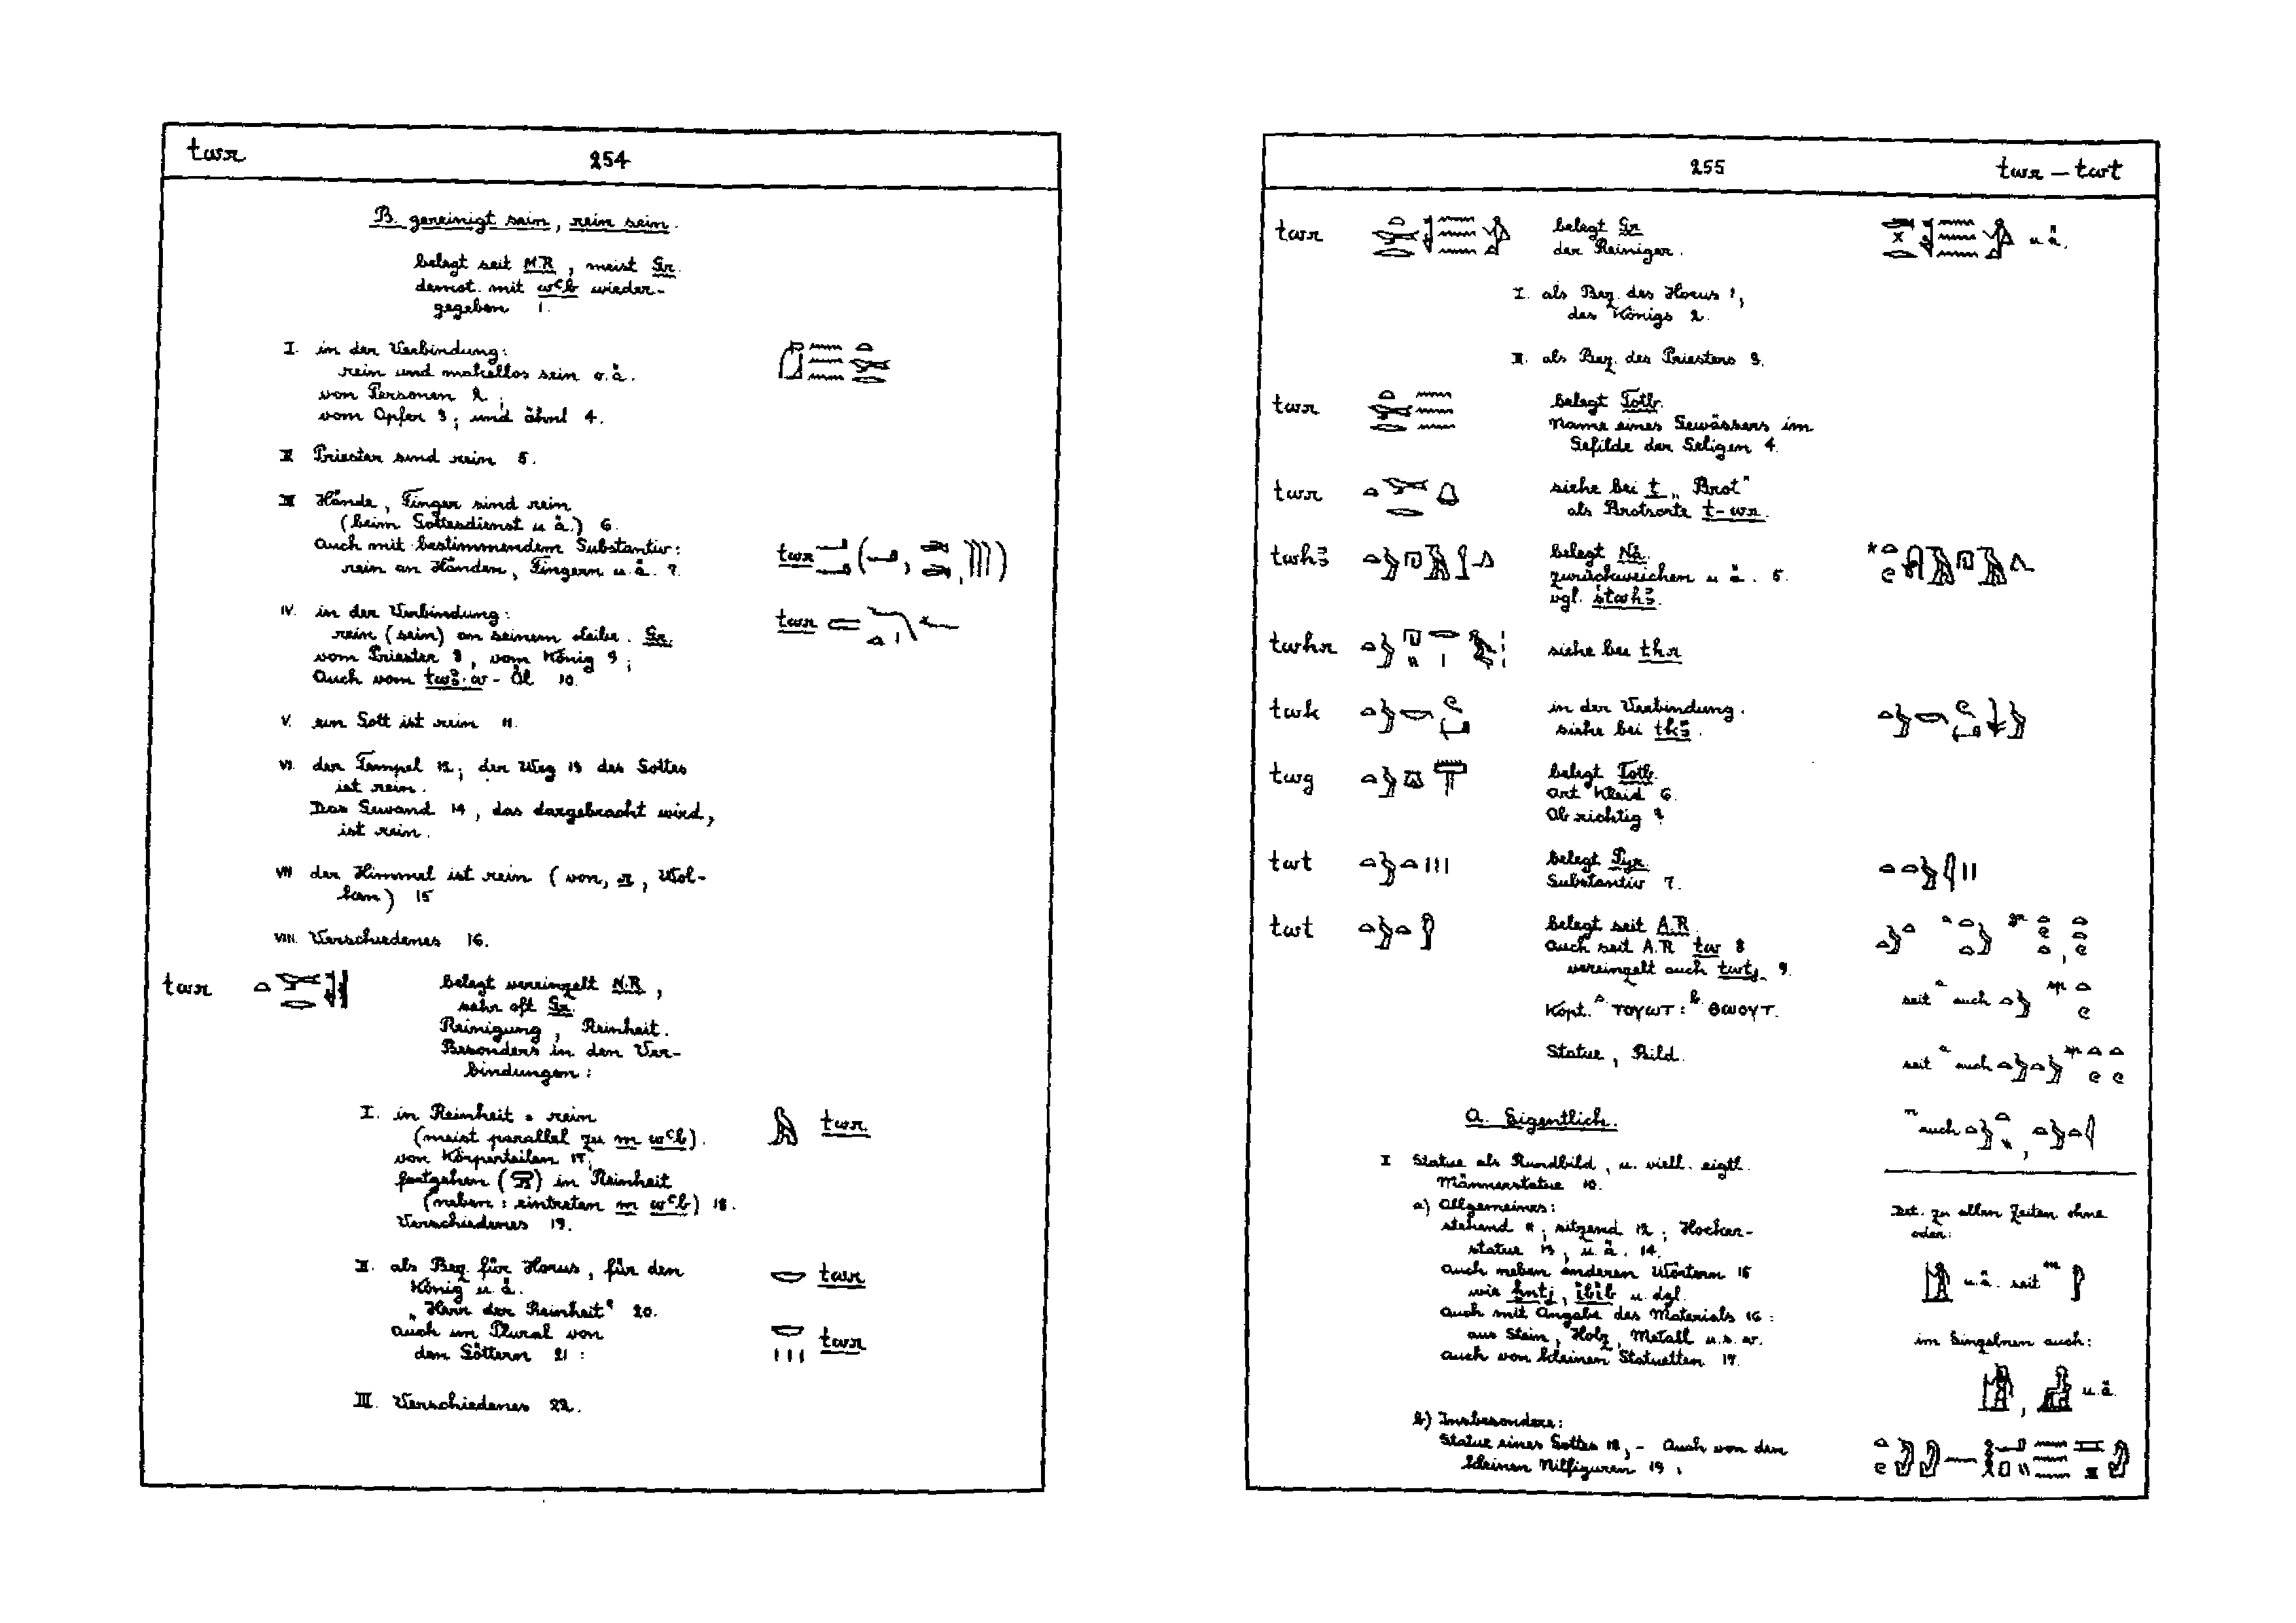 twr 254
B. gereinigt sein, rein sein.
belegt seit M.R, meist Gr.
demot. mit wꜥb wieder-
gegeben 1.
I. in der Verbindung:
rein und makellos sein o.ä.
von Personen 2;
vom Opfer 3; und ähnl 4.
II Priester sind rein 5.
III Hände, Finger sind rein
(beim Gottesdienst u ä.) 6.
Auch mit bestimmendem Substantiv: twr
rein an Händen, Fingern u.ä. 7.
IV. in der Verbindung: twr
rein (sein) an seinem Leibe. Gr.
vom Priester 8, vom König 9;
Auch vom twꜣ.w - Öl 10.
V. ein Gott ist rein 11.
VI. der Tempel 12; der Weg 13 des Gottes
ist rein.
Das Gewand 14, das dargebracht wird,
ist rein.
VII der Himmel ist rein (von, r, Wol-
ken) 15
VIII. Verschiedenes 16.
twr belegt vereinzelt N.R,
sehr oft Gr.
Reinigung, Reinheit.
Besonders in den Ver-
bindungen:
I. in Reinheit = rein twr.
(meist parallel zu m wꜥb).
von Körperteilen 17;
fortgehen () in Reinheit
(neben: eintreten m wꜥb) 18.
Verschiedenes 19.
II. als Bez. für Horus, für den twr
König u. ä.
„Herr der Reinheit“ 20.
Auch im Plural von twr
den Göttern 21:
III. Verschiedenes 22.
255 twr — twt
twr belegt Gr u ä.
der Reiniger.
I. als Bez. des Horus 1,
des Königs 2.
II. als Bez. des Priesters 3.
twr belegt Totb.
Name eines Gewässers im
Gefilde der Seligen 4.
twr siehe bei t „Brot“
als Brotsorte t-wr.
twhꜣ belegt Nä.
zurückweichen u ä. 5.
vgl. stwhꜣ.
twhr siehe bei thr
twk in der Verbindung.
siehe bei tkꜣ.
twg belegt Totb.
Art Kleid 6.
Ob richtig?
twt belegt Pyr.
Substantiv 7.
twt belegt seit A.R.
auch seit A.R tw 8
vereinzelt auch twtj 9.
Kopt. ᵃ· ⲧⲟⲩⲱⲧ: ᵇ· ⲑⲱⲟⲩⲧ. seit auch
Statue, Bild. seit auch
A. Eigentlich. auch
I Statue als Rundbild, u. viell. eigtl.
Männerstatue 10.
a) Allgemeines: Det. zu allen Zeiten ohne
stehend 11; sitzend 12; Hocker- oder:
statue 13, u. ä. 14.
Auch neben anderen Wörtern 15 u.ä. seit
wie ẖntj, ỉbỉb u. dgl.
Auch mit Angabe des Materials 16:
aus Stein, Holz, Metall u.s.w. im Einzelnen auch:
Auch von kleinen Statuetten 17.
u.ä.
b) Insbesondere:
Statue eines Gottes 18, – Auch von den
kleinen Nilfiguren 19,